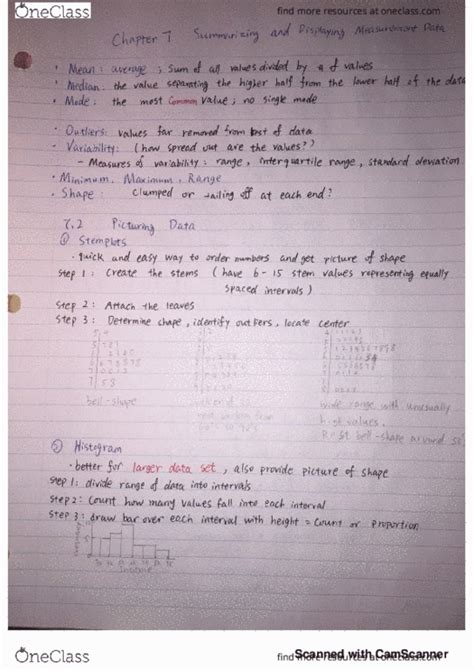 OneClass
find more resources at oneclass.com
Chapter 7 Summarizing and Displaying Measurement Data
• Mean: average; sum of all values divided by # of values
• Median: the value separating the higher half from the lower half of the data
• Mode: the most common value; no single mode
• Outliers: values far removed from rest of data
• Variability: (how spread out are the values?)
- Measures of variability: range, interquartile range, standard deviation
• Minimum, Maximum, Range
• Shape: Clumped or tailing off at each end?
7.2 Picturing Data
① Stemplots
• quick and easy way to order numbers and get picture of shape
Step 1: Create the stems (have 6-15 stem values representing equally
spaced intervals)
Step 2: Attach the leaves
Step 3: Determine shape, identify outliers, locate center
bell-shape
wide range with unusually
high values.
bell-shape around
② Histogram
• better for larger data set, also provide picture of shape
Step 1: divide range of data into intervals
Step 2: Count how many values fall into each interval
Step 3: draw bar over each interval with height = Count or proportion
Income
OneClass
find more resources at oneclass.com
Scanned with CamScanner